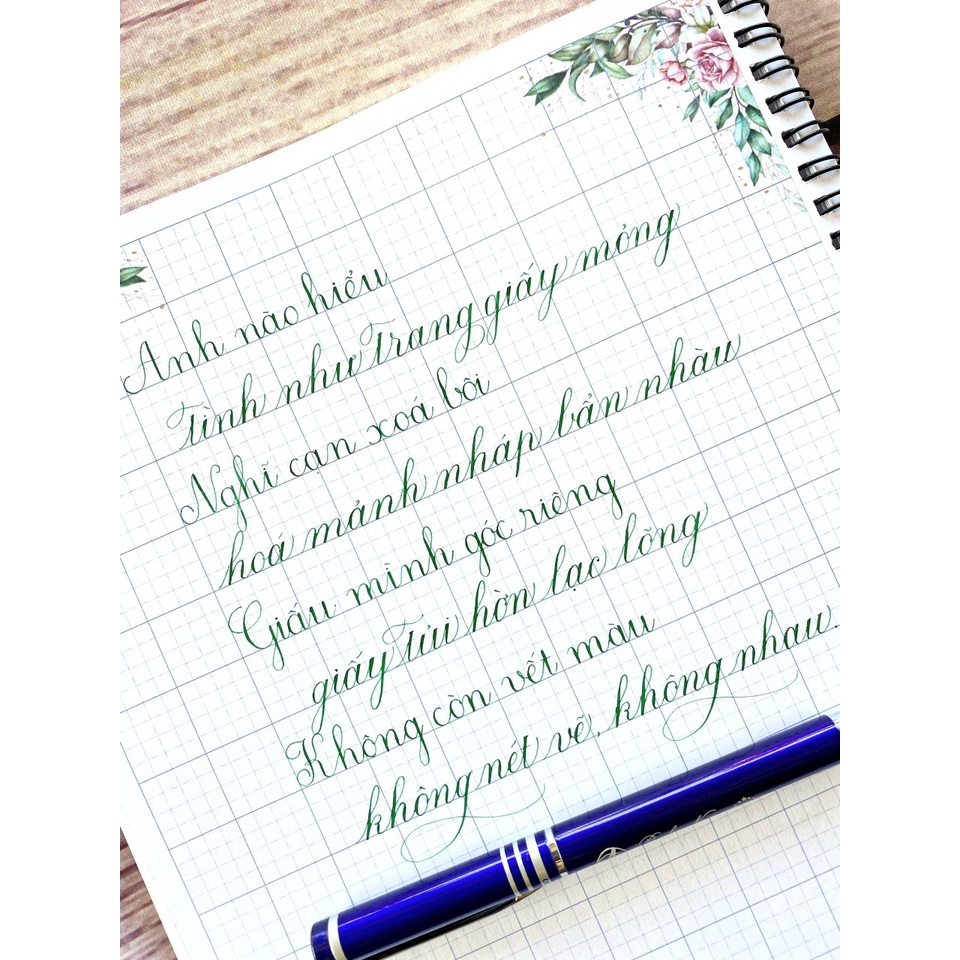 Anh nào hiểu
Tình như Trang giấy mỏng
Nghĩ cạn xoá bôi
hoá mảnh nháp bẩn nhàu
Giấu mình góc riêng
giấy Tủi hờn lạc lõng
Không còn vết màu
không nét vẽ, không nhau.